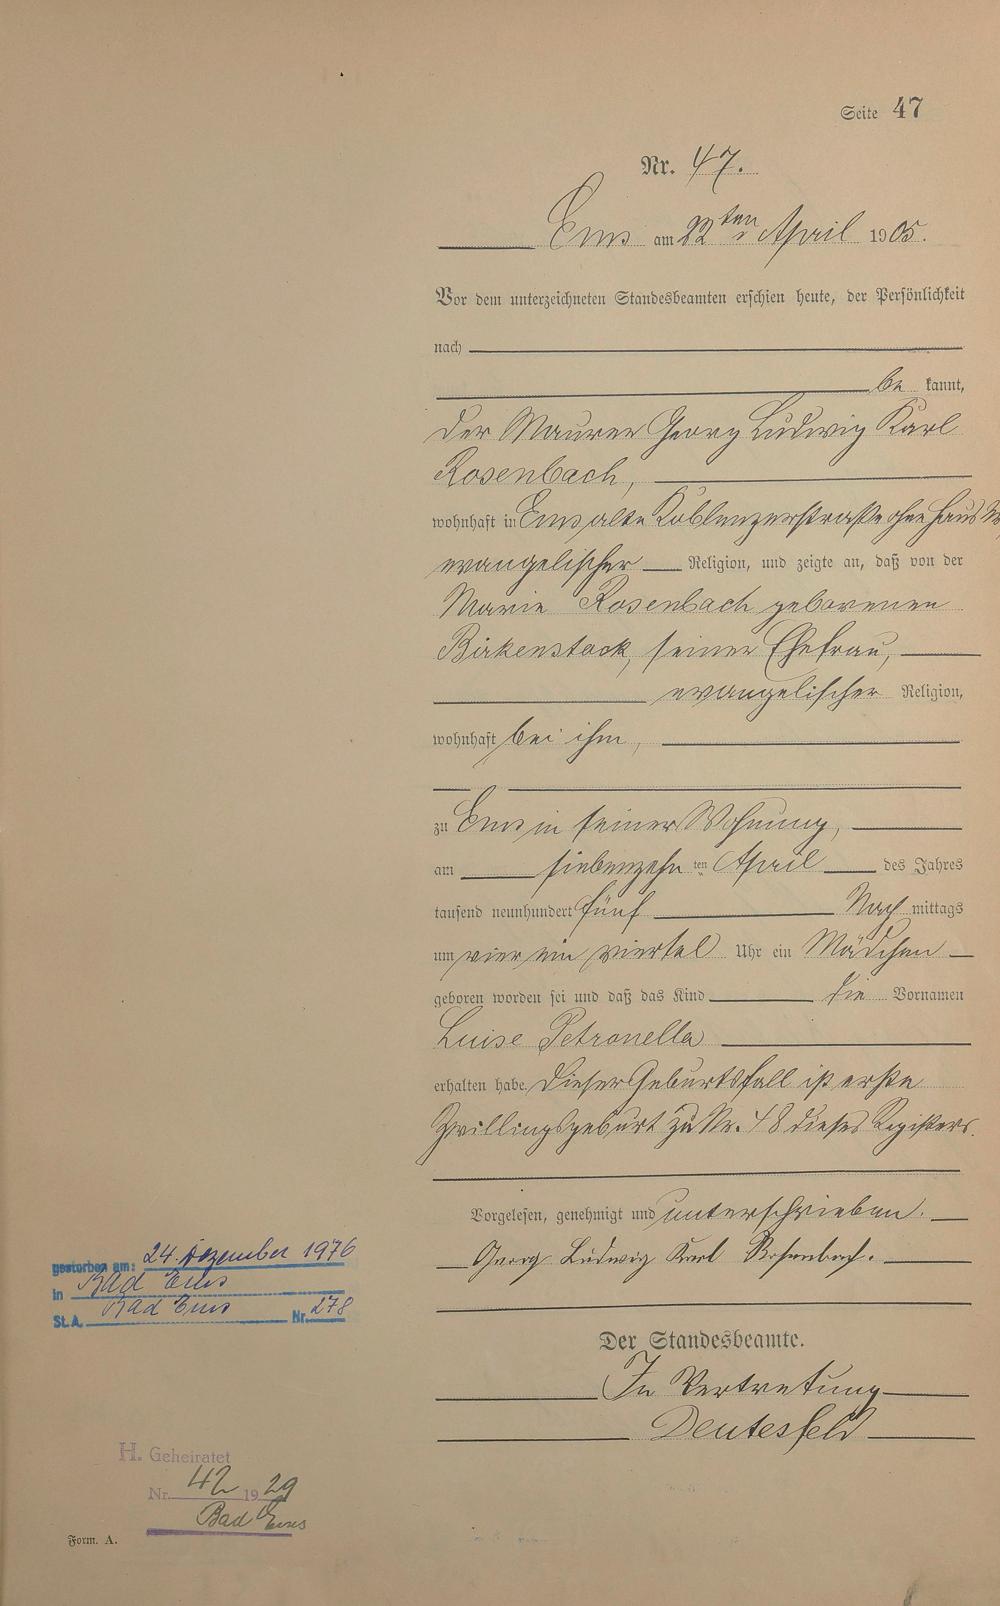 Seite 47
Nr. 47.
Ems am 22ten April 1905.
Vor dem unterzeichneten Standesbeamten erschien heute, der Persönlichkeit
nach
be kannt,
der Maurer Georg Ludwig Karl
Rosenbach,
wohnhaft in Ems alte Koblenzerstraße ohne Haus N
evangelischer Religion, und zeigte an, daß von der
Marie Rosenbach geborenen
Birkenstock, seiner Ehefrau,
evangelischer Religion,
wohnhaft bei ihm,
zu Ems in seiner Wohnung,
am siebenzehn ten April des Jahres
tausend neunhundert fünf Nach mittags
um vier ein viertel Uhr ein Mädchen
geboren worden sei und daß das Kind die Vornamen
Luise Petronella
erhalten habe. Dieser Geburtsfall ist erste
Zwillingsgeburt zu Nr. 48 dieses Registers.
Vorgelesen, genehmigt und unterschrieben.
Georg Ludwig Karl Rosenbach.
Der Standesbeamte.
In Vertretung
Deutesfeld
gestorben am: 24. Dezember 1976
in Bad Ems
St.A. Bad Ems Nr. 278
H. Geheiratet
Nr. 42 1929
Bad Ems
Form. A.